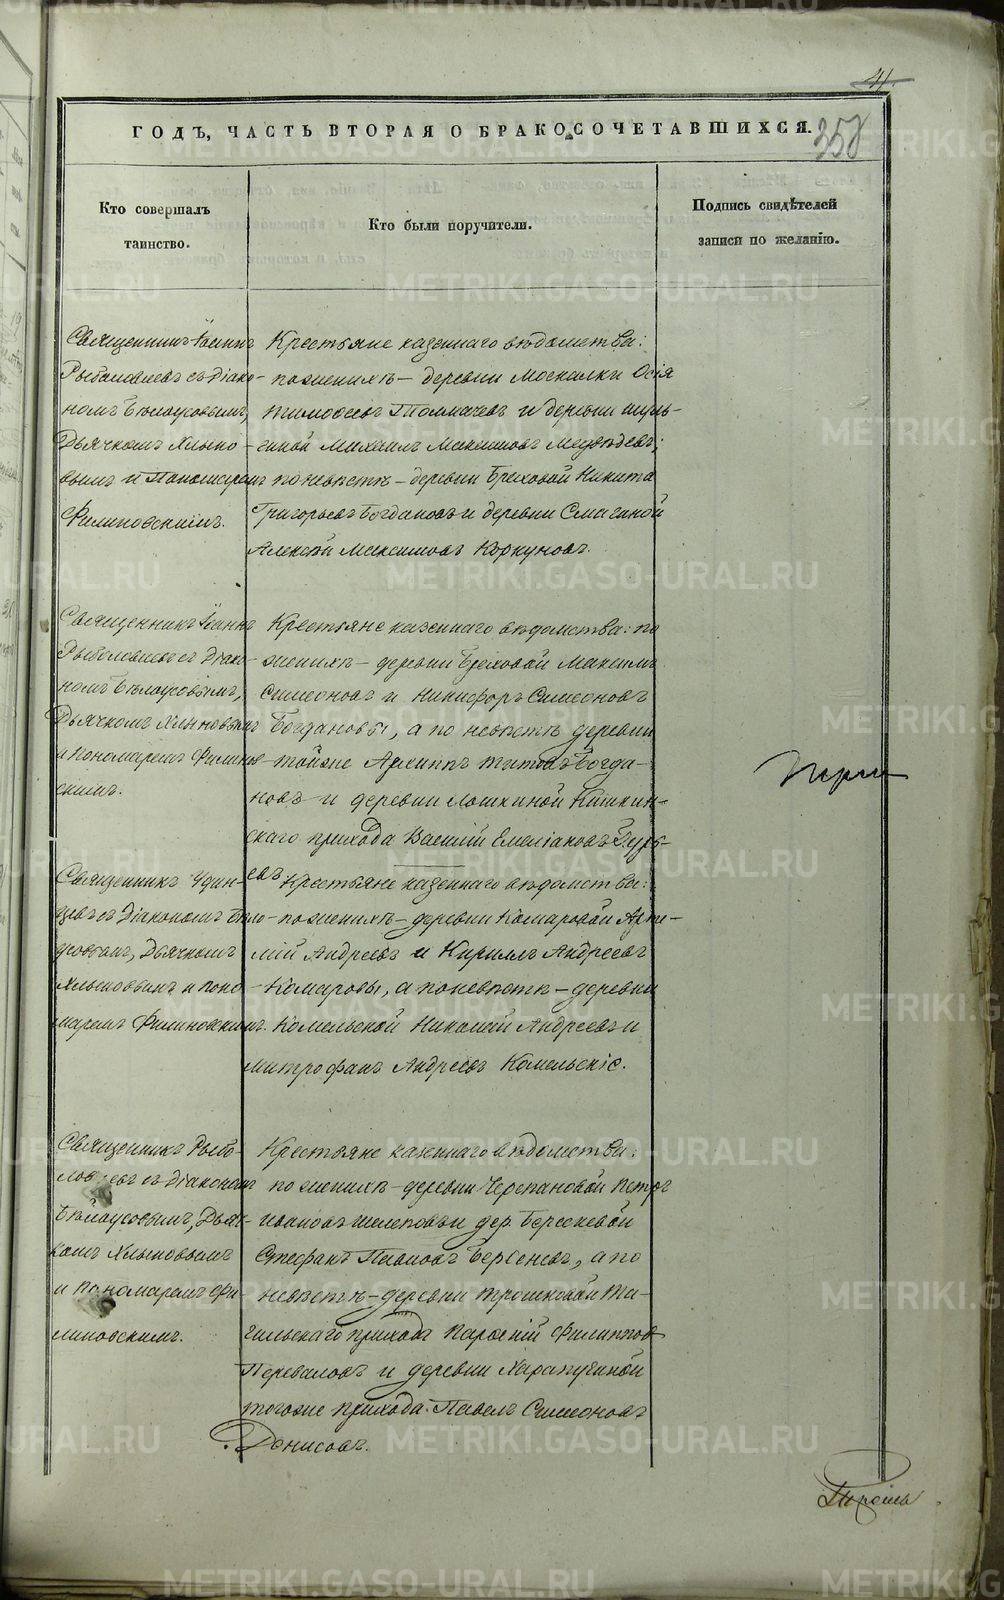 41.
358
ГОДЪ, ЧАСТЬ ВТОРАЯ О БРАКОСОЧЕТАВШИХСЯ.
Кто совершалъ
таинство.
Кто были поручители.
Подпись свидѣтелей
записи по желанію.
Священникъ Іоаннъ
Рыболовлевъ съ Діако-
номъ Бѣлоусовымъ,
Дьячкомъ Хлыно-
вымъ и Пономаремъ
Филиповскимъ.
Крестьяне казеннаго вѣдомства:
по женихѣ – деревни Москалки Осія
Тимофеевъ Толмачевъ и деревни Шуль-
гиной Михаилъ Максимовъ Медвѣдевъ;
по невѣстѣ – деревни Бреховой Никита
Григорьевъ Богдановъ и деревни Смагиной
Алексѣй Максимовъ Коркуновъ.
Священникъ Іоаннъ
Рыболовлевъ съ Діако-
номъ Бѣлоусовымъ,
Дьячкомъ Хлыновымъ
и Пономаремъ Филипов-
скимъ.
Крестьяне казеннаго вѣдомства: по
женихѣ – деревни Бреховой Максимъ
Симеоновъ и Никифоръ Симеоновъ
Богдановы, а по невѣстѣ деревни
тойже Архиппъ Титовъ Богда-
новъ и деревни Лошкиной Кишкин-
скаго прихода Василій Емеліановъ
евъ
Священникъ Удин-
цевъ съ Діакономъ Бѣло-
усовымъ, Дьячкомъ
Хлыновымъ и Поно-
маремъ Филиповскимъ.
Крестьяне казеннаго вѣдомства:
по женихѣ – деревни Комаровой Арте-
мій Андреевъ и Кириллъ Андреевъ
Комаровы, а по невѣстѣ – деревни
Комельской Николай Андреевъ и
Митрофанъ Андреевъ Комельскіе.
Священникъ Рыбо-
ловлевъ съ Діакономъ
Бѣлоусовымъ, Дьяч-
комъ Хлыновымъ
и Пономаремъ Фи-
липовскимъ.
Крестьяне казеннаго вѣдомства:
по женихѣ – деревни Черепановой Петръ
Ивановъ Шелеповъ и дер. Берсеневой
Стефанъ Павловъ Берсеневъ, а по
невѣстѣ – деревни Трошковой Та-
гильскаго прихода Парѳеній Филипповъ
Переваловъ и деревни Харапугиной
тогоже прихода Павелъ Симеоновъ
Денисовъ.
METRIKI.GASO-URAL.RU